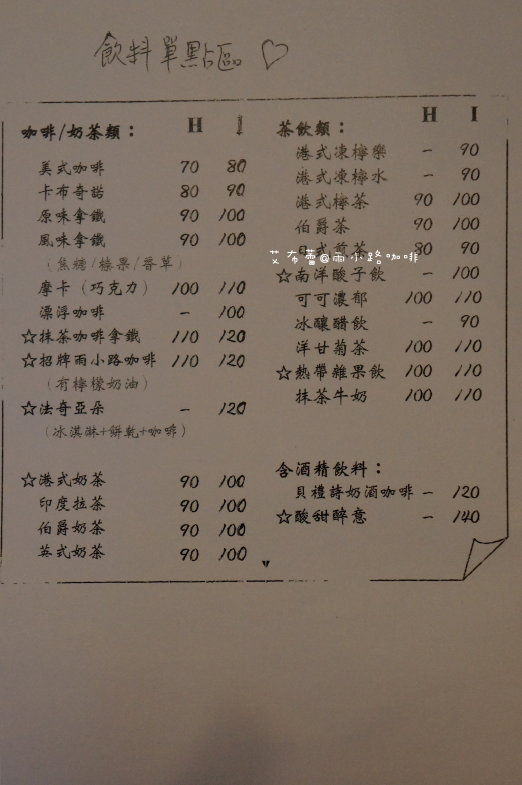 飲料單點區 ♡
咖啡/奶茶類： H I
美式咖啡 70 80
卡布奇諾 80 90
原味拿鐵 90 100
風味拿鐵 90 100
(焦糖/榛果/香草)
摩卡 (巧克力) 100 110
漂浮咖啡 – 100
☆抹茶咖啡拿鐵 110 120
☆招牌雨小路咖啡 110 120
(有檸檬奶油)
☆法奇亞朵 – 120
(冰淇淋+餅乾+咖啡)
☆港式奶茶 90 100
印度拉茶 90 100
伯爵奶茶 90 100
英式奶茶 90 100
茶飲類： H I
港式凍檸樂 – 90
港式凍檸水 – 90
港式檸茶 90 100
伯爵茶 90 100
式煎茶 80 90
艾布蕾@雨小路咖啡
☆南洋酸子飲 – 100
可可濃郁 100 110
冰釀醋飲 – 90
洋甘菊茶 100 110
☆熱帶雜果飲 100 110
抹茶牛奶 100 110
含酒精飲料：
貝禮詩奶酒咖啡 – 120
☆酸甜醉意 – 140